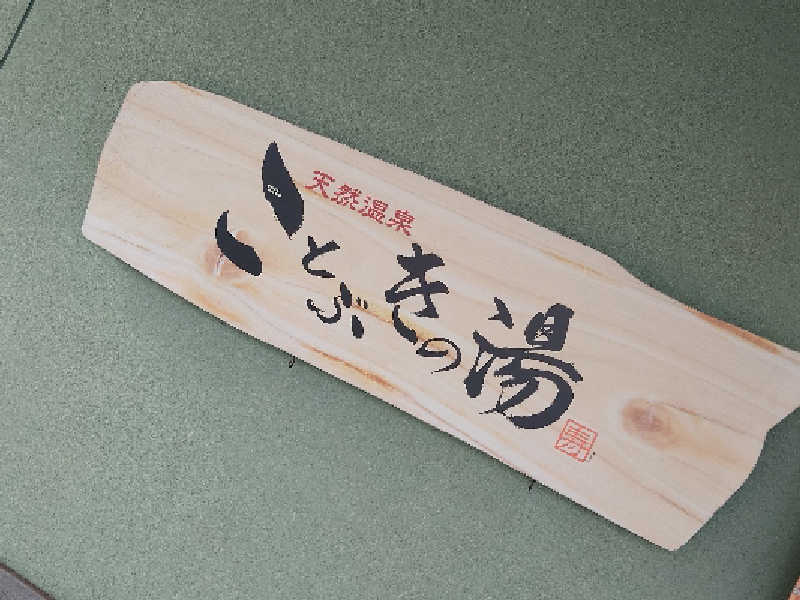 天然温泉
ことぶきの湯
寿